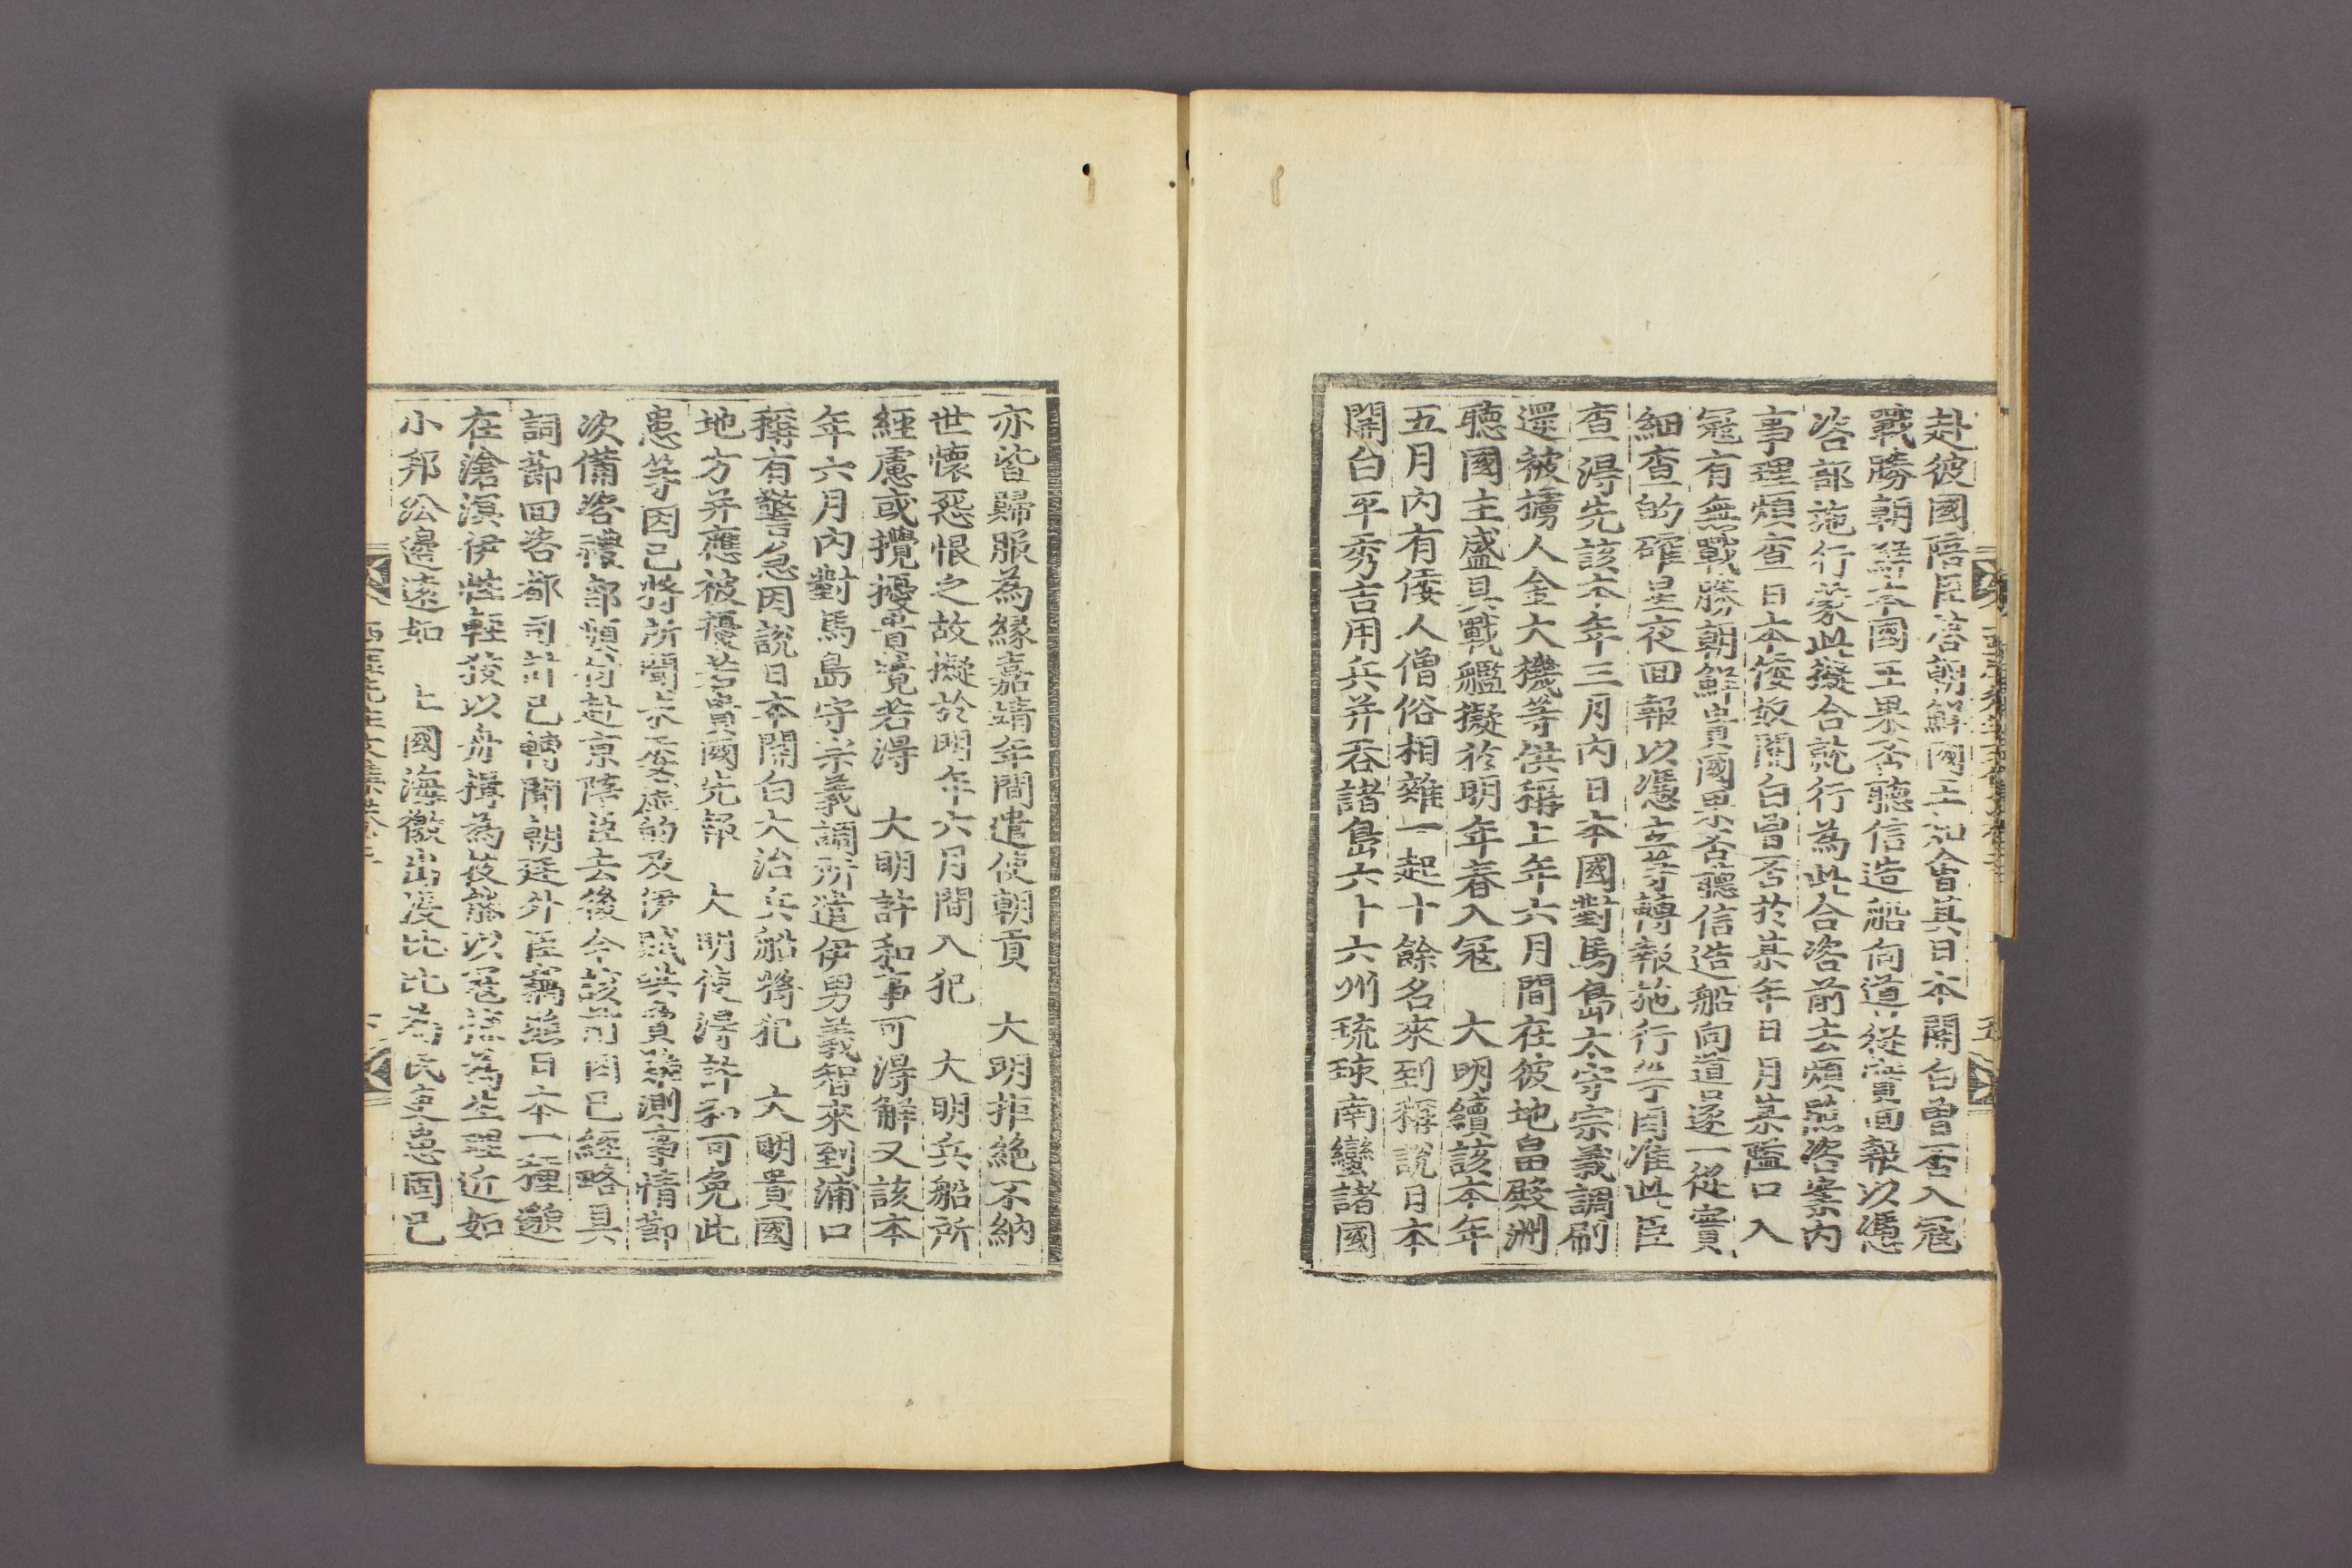 赴彼國陪臣荅朝鮮國王知會其日本關白曾否入寇
戰勝朝鮮本國王果否聽信造船向道從實回報以憑
咨部施行蒙此擬合就行為此合咨前去煩照咨案內
事理煩查日本倭奴關白曾否於某年日月某隘口入
寇有無戰勝朝鮮貴國果否聽信造船向道逐一從實
細查的確星夜回報以憑立等轉報施行等因准此臣
查得先該本年三月內日本國對馬島太守宗義調刷
還被擄人金大機等供稱上年六月間在彼地畠殿洲
聽國主盛具戰艦擬於明年春入寇 大明續該本年
五月內有倭人僧俗相雜一起十餘名來到稱說日本
關白平秀吉用兵并吞諸島六十六州琉球南蠻諸國
亦皆歸服為緣嘉靖年間遣使朝貢 大明拒絶不納
世懷惡恨之故擬於明年六月間入犯 大明兵船所
經慮或攪擾貴境若得 大明許和事可得解又該本
年六月內對馬島守宗義調所遣伊男義智來到浦口
稱有警急因說日本關白大治兵船將犯 大明貴國
地方并應被擾若貴國先報 大明使得許和可免此
患等因已將所聞未委虛的及伊賊供實難測事情節
次備咨禮部順付赴京陪臣去後今該前因已經略具
詞節回咨都司計已轉聞朝廷外臣竊照日本一種邈
在滄溟伊性輕狡以舟揖為技能以寇掠為生理近如
小邦公邊遠如 上國海徼出沒比比為民吏患固已